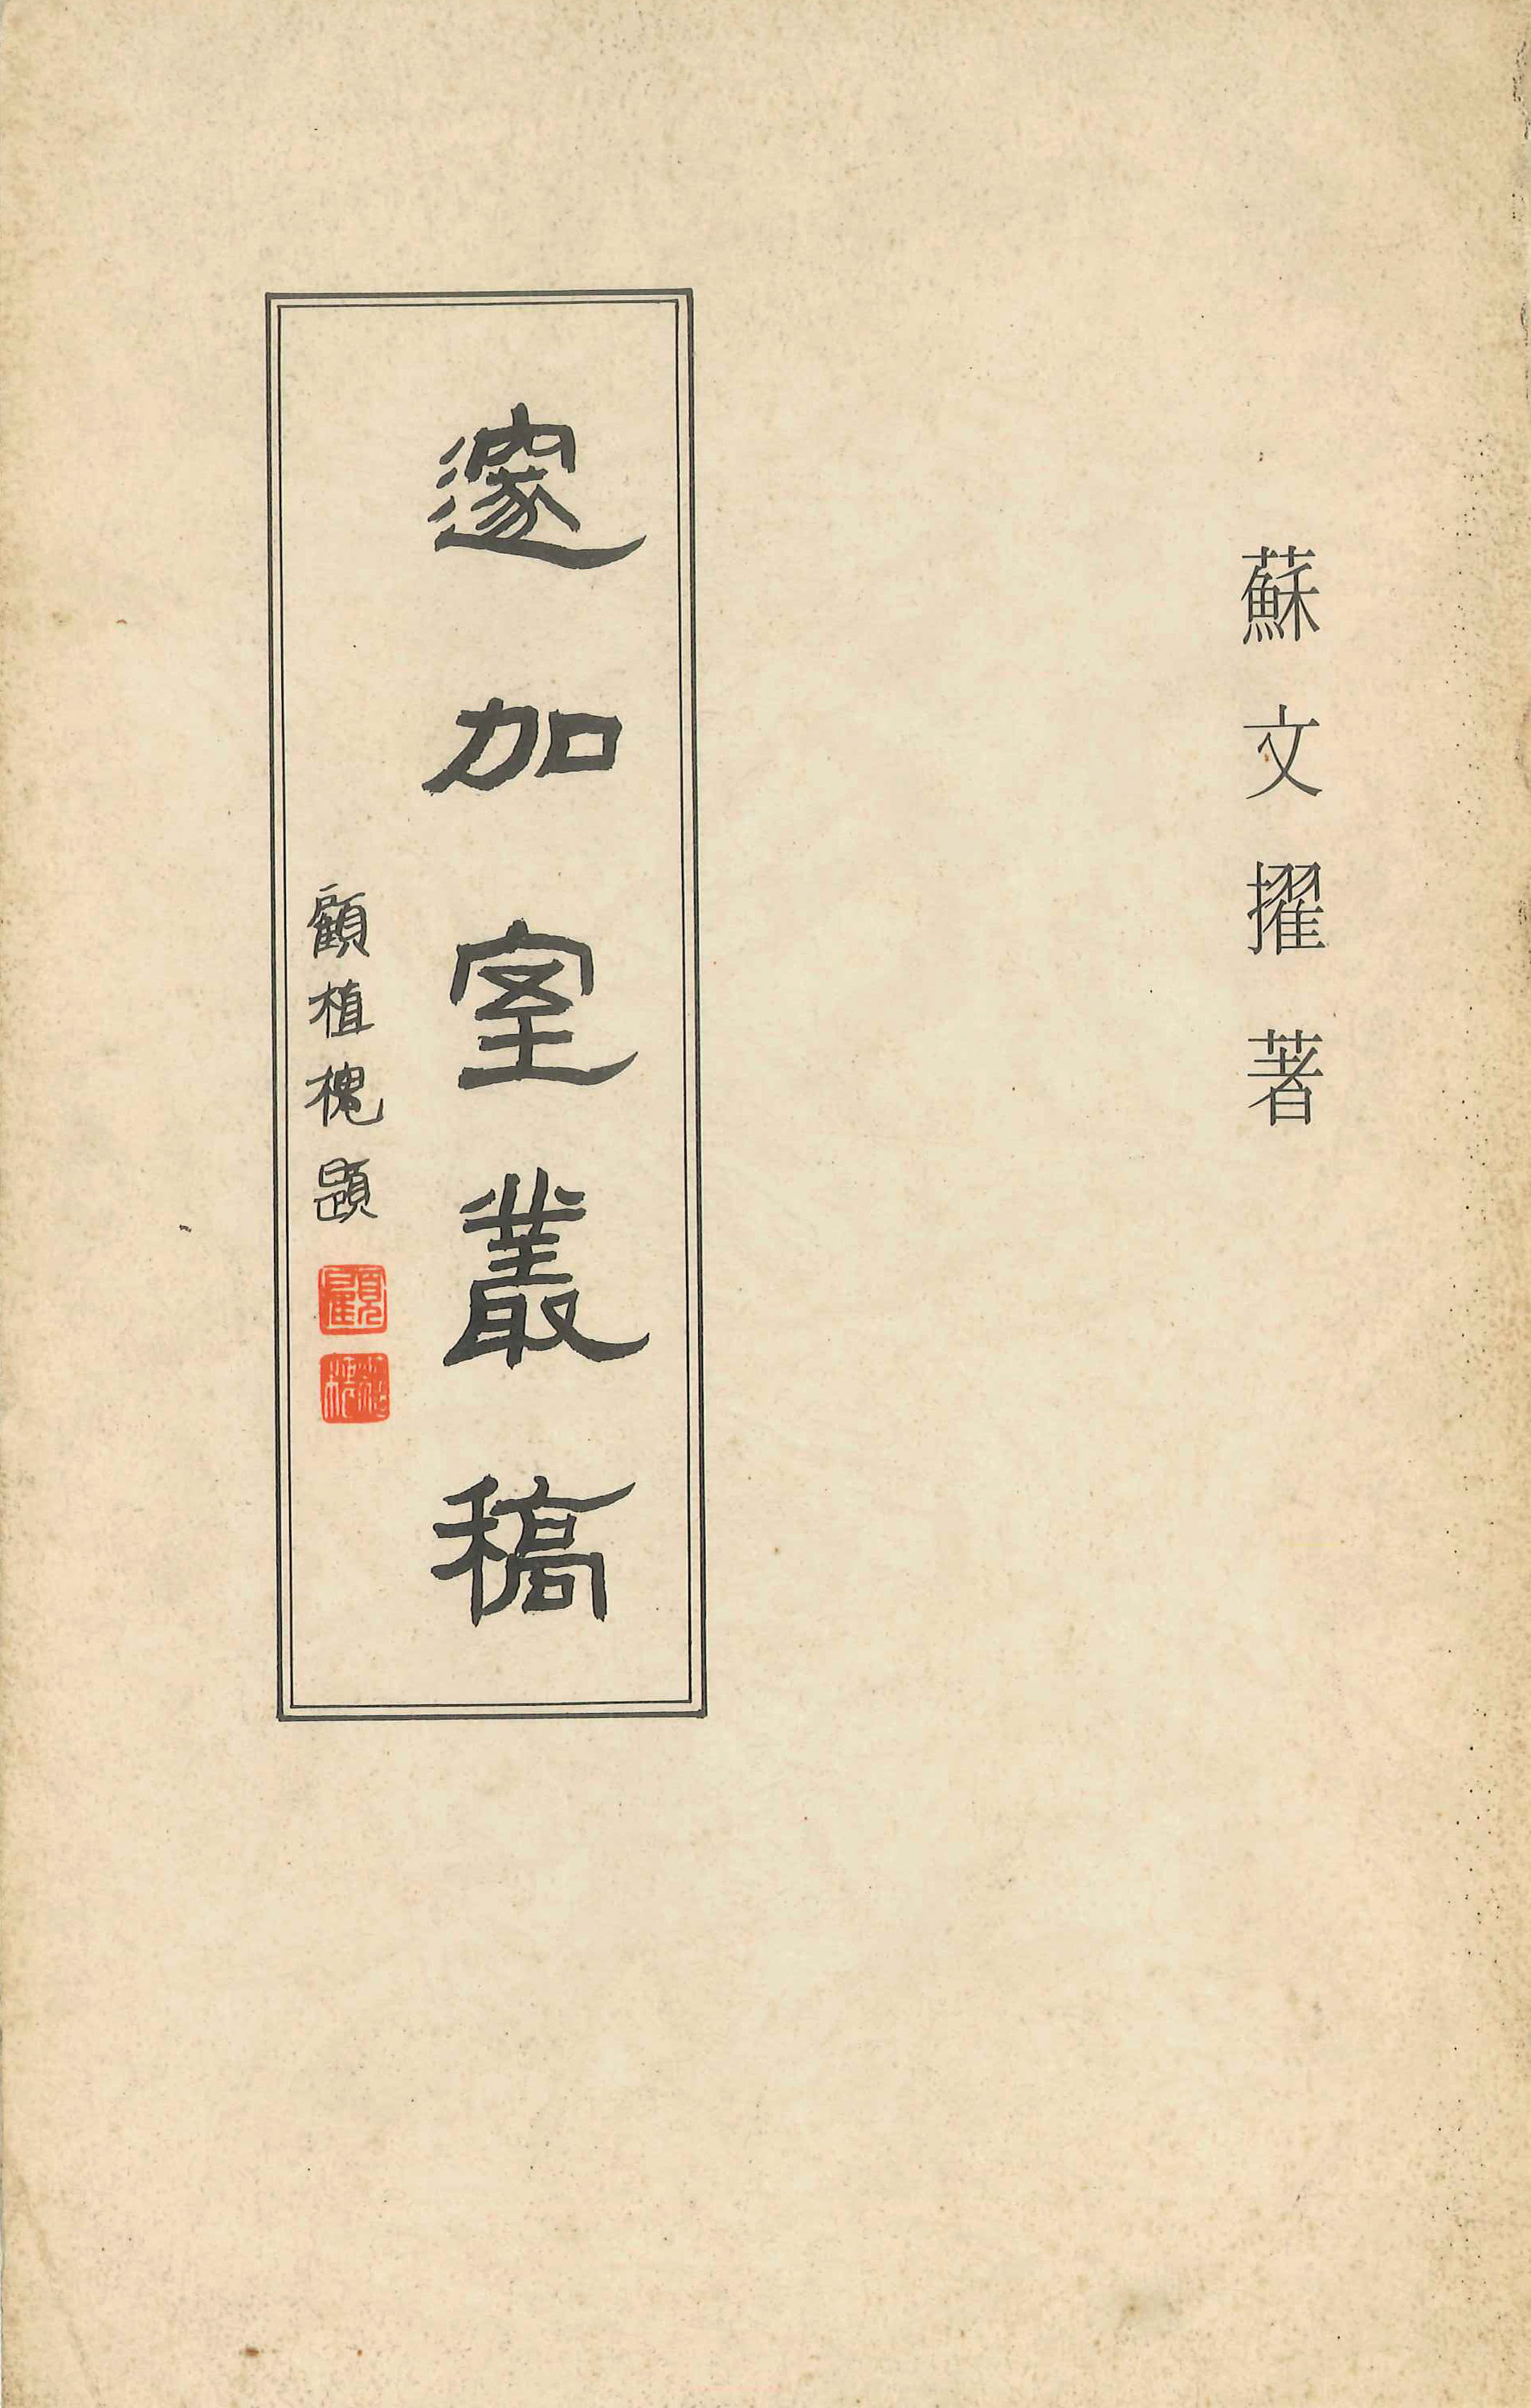 蘇文擢著
邃加室叢稿
顧植槐題
顧